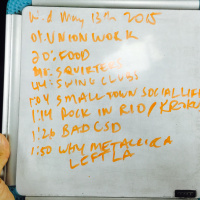 Wed May 13th 2015
01 UNION WORK
20: FOOD
SQUIRTED
44: SWING CLUBS
1:04 SMALL TOWN SOCIAL LIFE
1:14 ROCK IN RIO /
1:26 BAD CSD
1:50 WHY METALLICA
LEFT LA